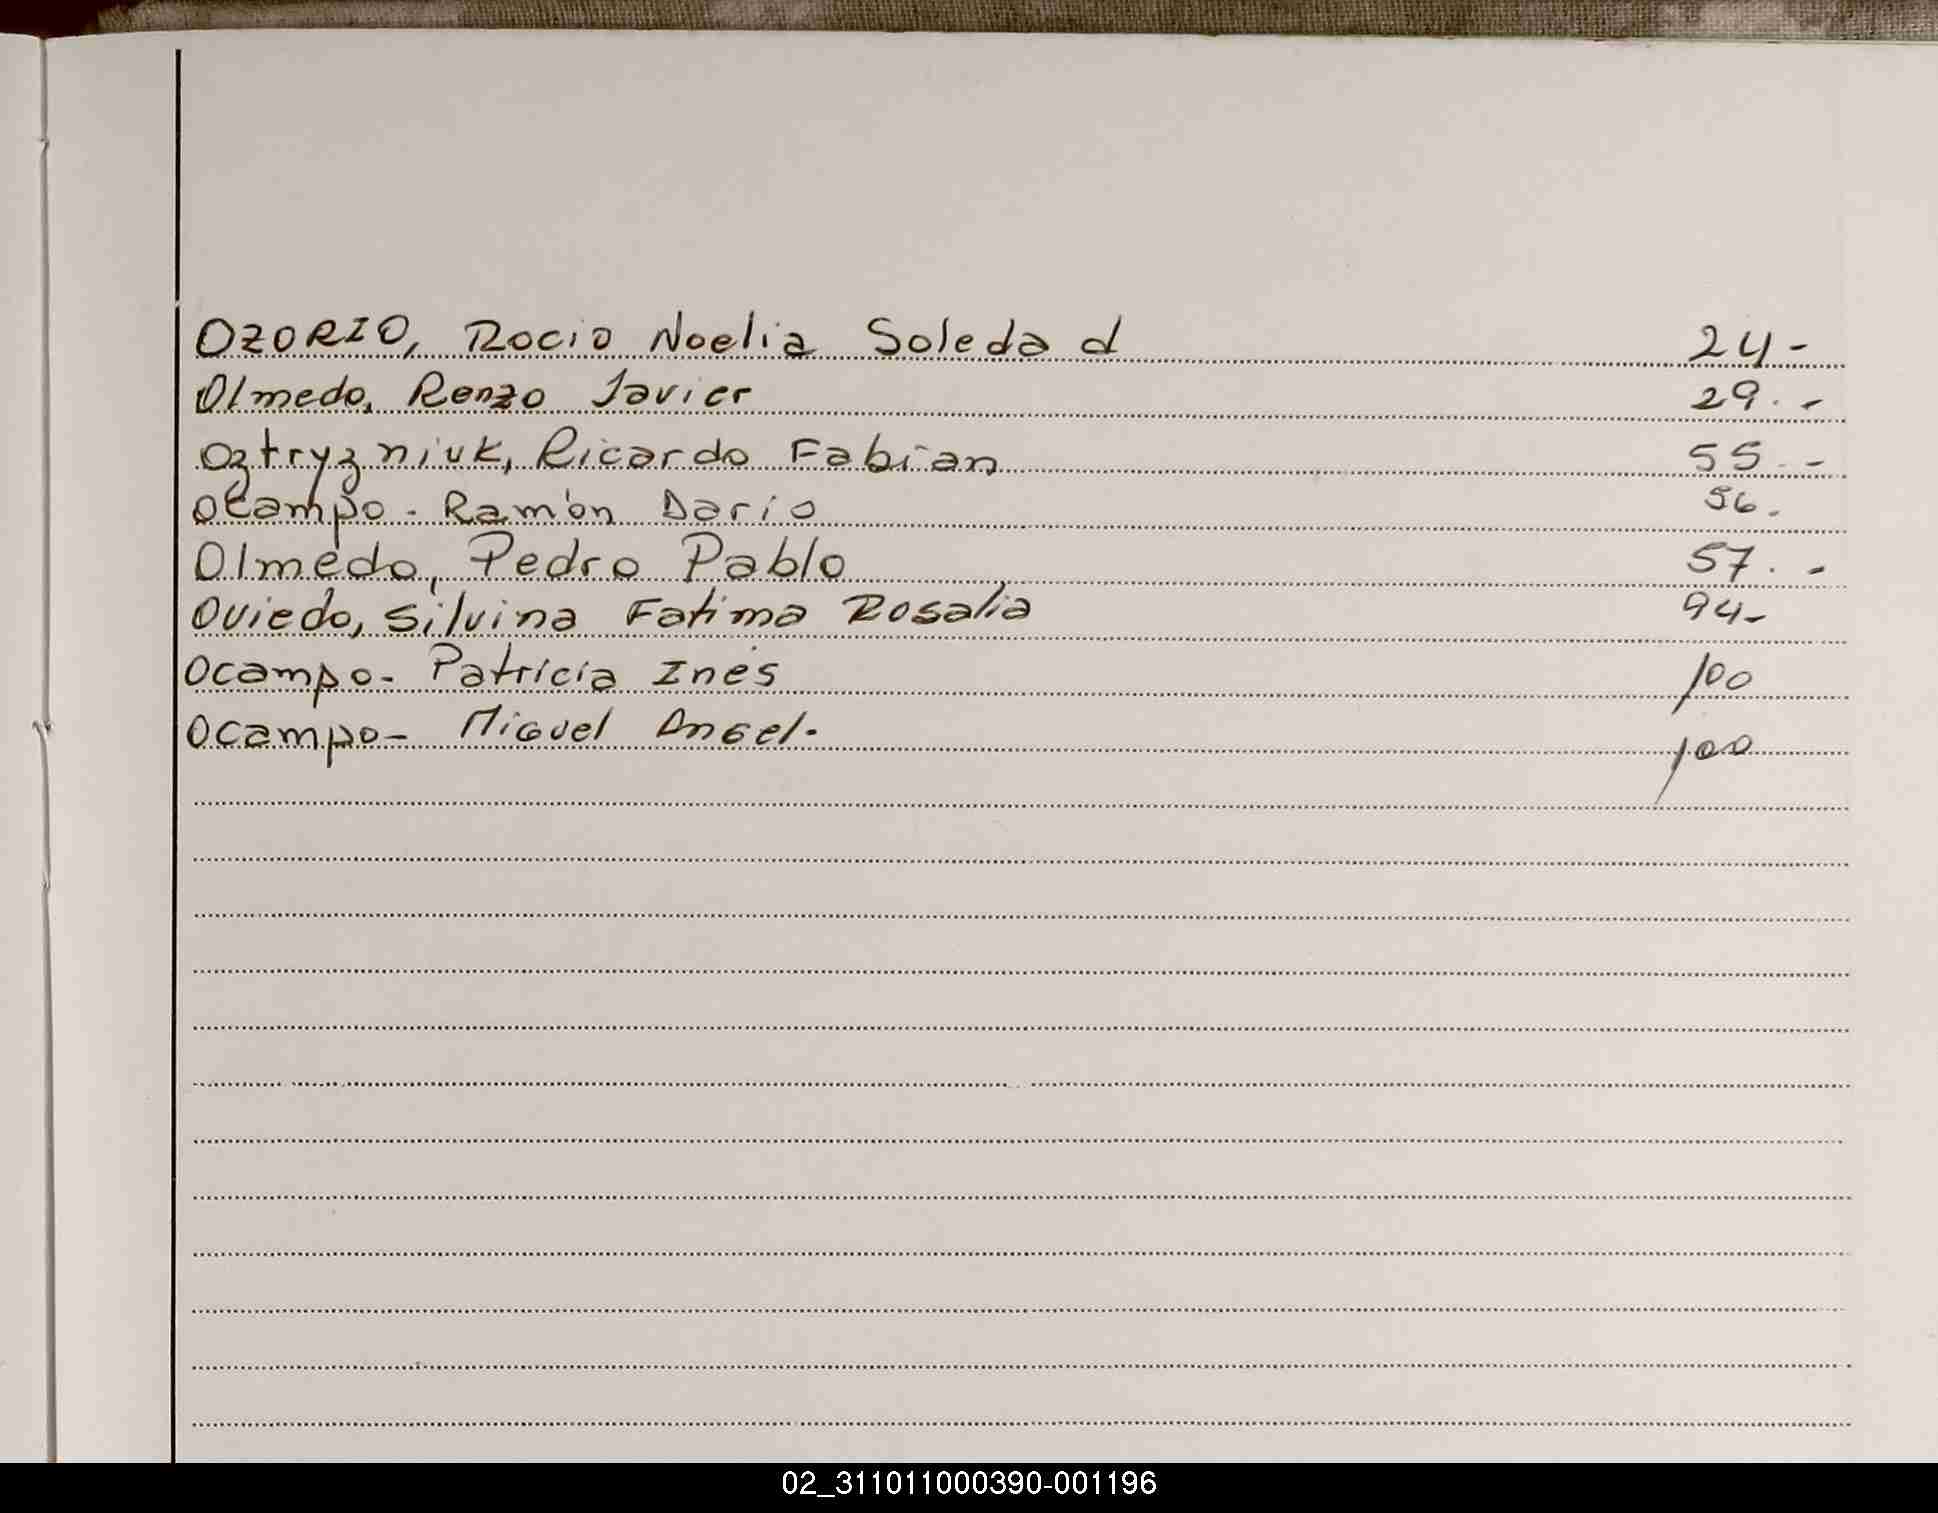 OZORIO, Rocio Noelia Soledad 24-
Olmedo, Renzo Javier 29.-
Oztryzniuk, Ricardo Fabian 55.-
Ocampo. Ramón Dario 56.
Olmedo, Pedro Pablo 57.-
Oviedo, Silvina Fatima Rosalia 94-
Ocampo- Patricia Inés 100
Ocampo- Miguel Angel. 100
02_311011000390-001196